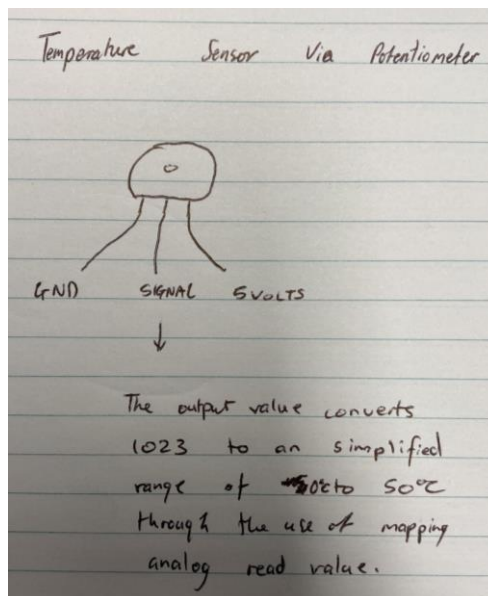 Temperature Sensor Via Potentiometer
GND SIGNAL 5VOLTS
The output value converts
1023 to an simplified
range of 0°c to 50°c
through the use of mapping
analog read value.